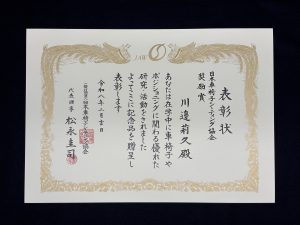 JASP
表彰状
日本車椅子シーティング協会
奨励賞
川邉莉久殿
あなたは在学中に車椅子や
ポジショニングに関わる優れた
研究活動をされました
よってここに記念品を贈呈し
表彰します
令和八年二月吉日
一般社団法人日本車椅子シーティング協会
代表理事 松永圭司